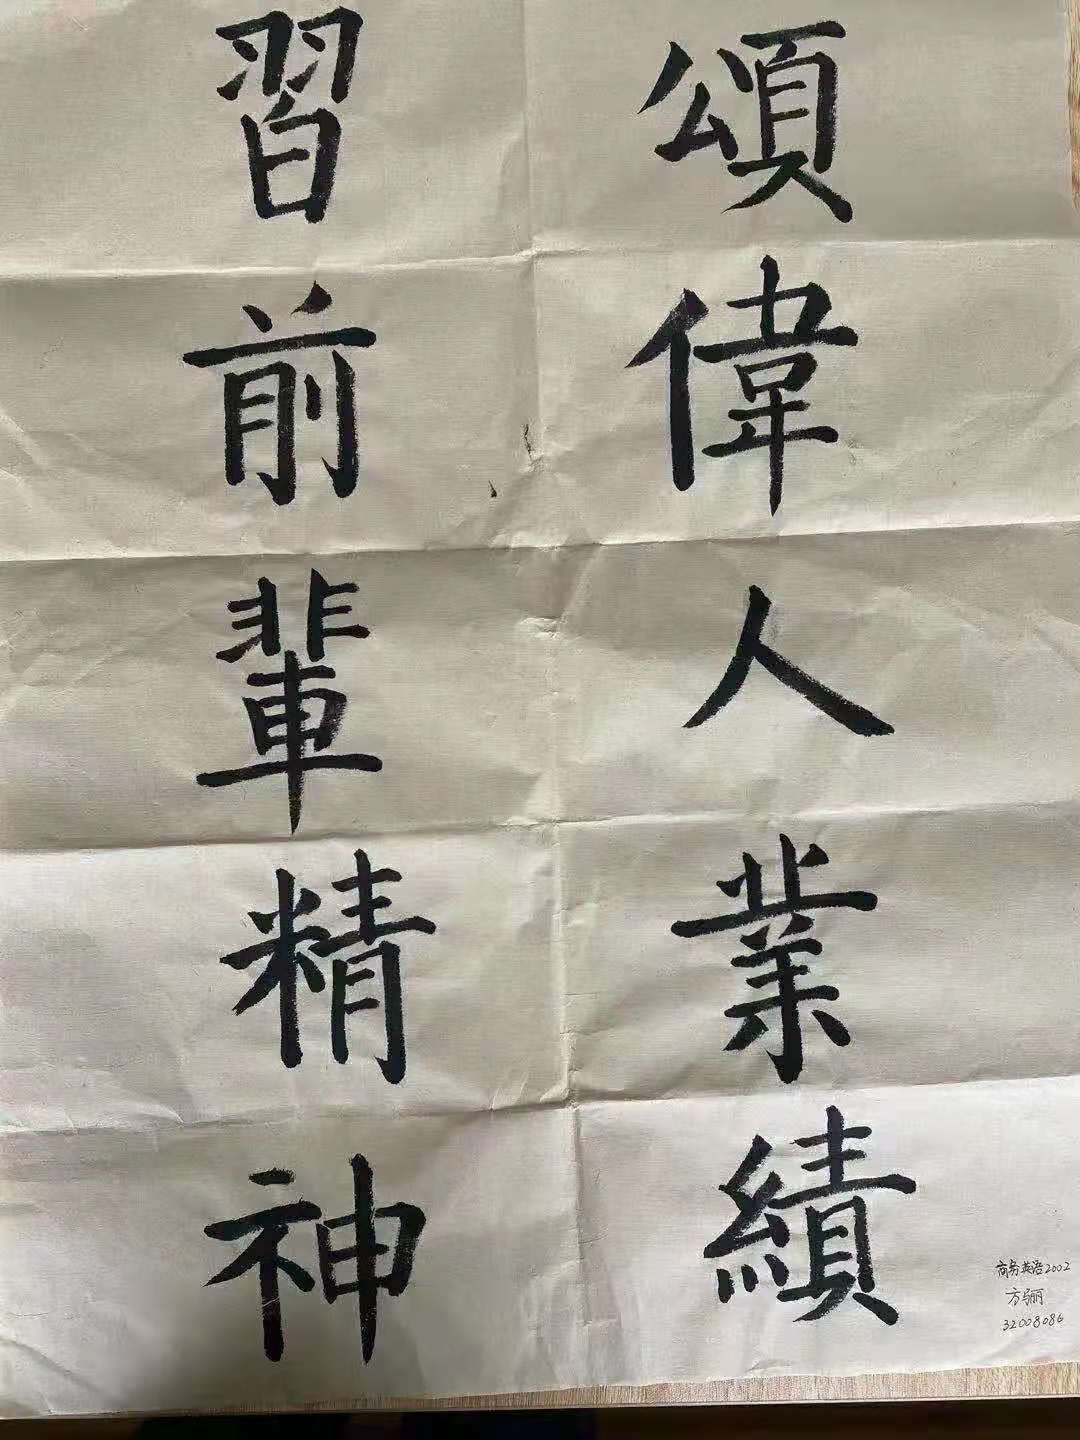 頌偉人業績
習前輩精神
商务英语2002
方骊
32008086